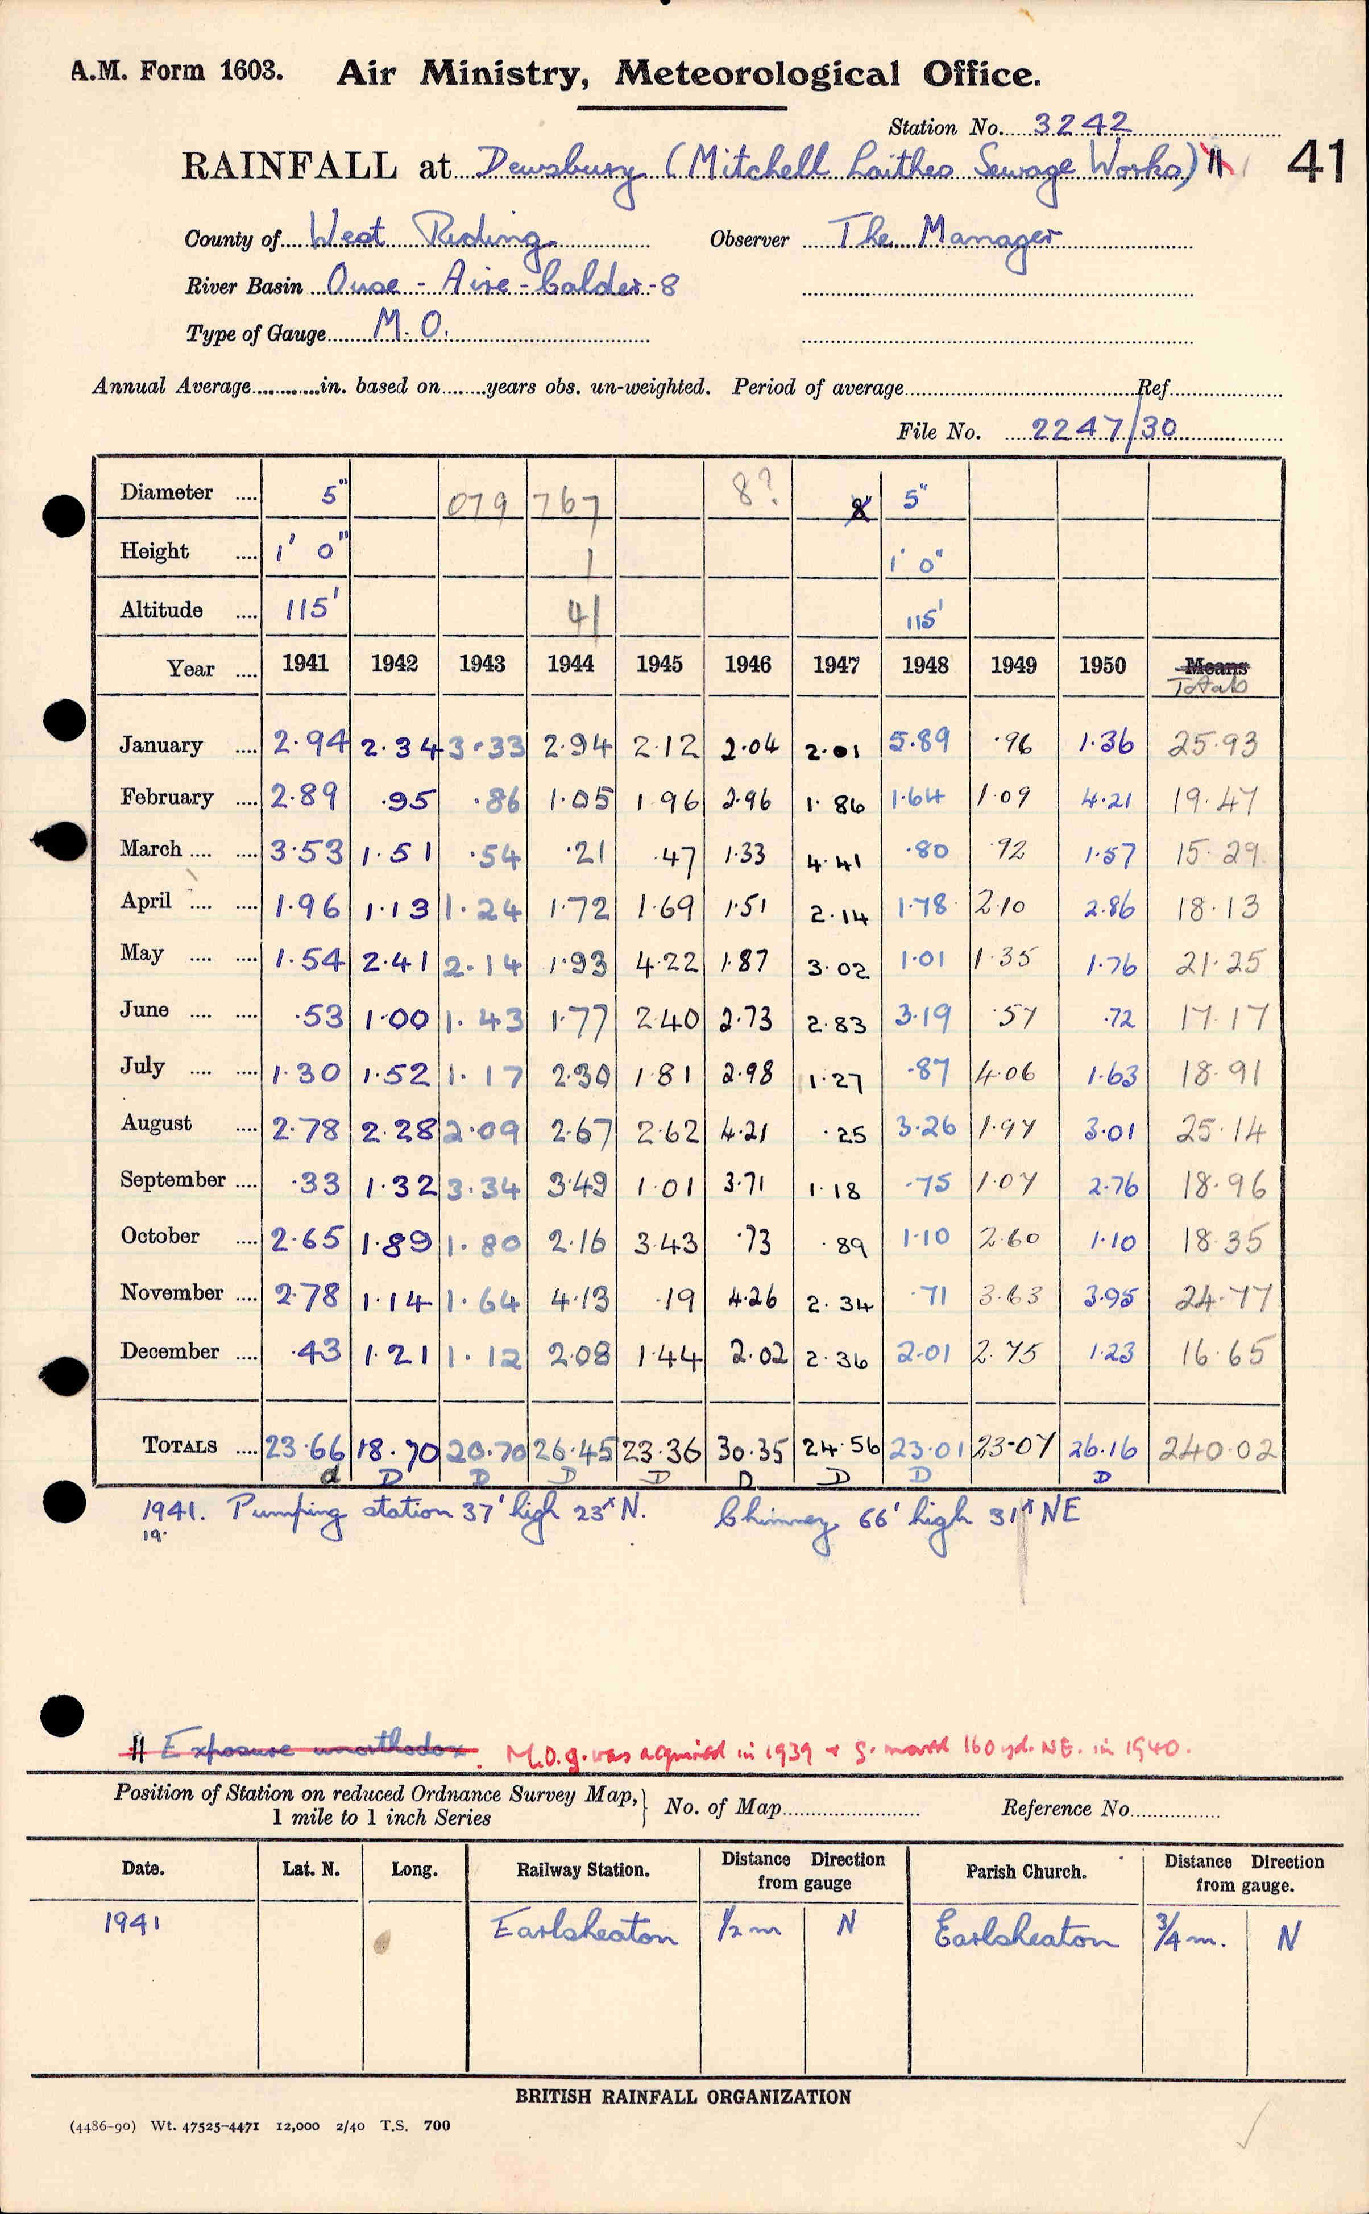 A.M. Form 1603. Air Ministry, Meteorological Office.
Station No. 3242
RAINFALL at Dewsbury (Mitchell Laithes Sewage Works) 41
County of West Riding Observer The Manager
River Basin Ouse - Aire - Calder - 8
Type of Gauge M.O.
Annual Average in. based on years obs. un-weighted. Period of average Ref
File No. 2247/30
Diameter 5" 079 767 8? 8 5"
Height 1' 0" 1 1' 0"
Altitude 115' 41 115'
Year 1941 1942 1943 1944 1945 1946 1947 1948 1949 1950 Means
Totals
January 2.94 2.34 3.33 2.94 2.12 2.04 2.01 5.89 .96 1.36 25.93
February 2.89 .95 .86 1.05 1.96 2.96 1.86 1.64 1.09 4.21 19.47
March 3.53 1.51 .54 .21 .47 1.33 4.41 .80 .92 1.57 15.29
April 1.96 1.13 1.24 1.72 1.69 1.51 2.14 1.78 2.10 2.86 18.13
May 1.54 2.41 2.14 1.93 4.22 1.87 3.02 1.01 1.35 1.76 21.25
June .53 1.00 1.43 1.77 2.40 2.73 2.83 3.19 .57 .72 17.17
July 1.30 1.52 1.17 2.30 1.81 2.98 1.27 .87 4.06 1.63 18.91
August 2.78 2.28 2.09 2.67 2.62 4.21 .25 3.26 1.97 3.01 25.14
September .33 1.32 3.34 3.49 1.01 3.71 1.18 .75 1.07 2.76 18.96
October 2.65 1.89 1.80 2.16 3.43 .73 .89 1.10 2.60 1.10 18.35
November 2.78 1.14 1.64 4.13 .19 4.26 2.34 .71 3.63 3.95 24.77
December .43 1.21 1.12 2.08 1.44 2.02 2.36 2.01 2.75 1.23 16.65
TOTALS 23.66 18.70 20.70 26.45 23.36 30.35 24.56 23.01 23.07 26.16 240.02
d D D D D D D D D
1941. Pumping station 37' high 23ˣ N. Chimney 66' high 31ˣ NE
19.
H Exposure unorthodox. M.O. g. was acquired in 1939 & g. moved 160 yd. NE. in 1940.
Position of Station on reduced Ordnance Survey Map,
1 mile to 1 inch Series } No. of Map Reference No.
Date. Lat. N. Long. Railway Station. Distance Direction from gauge Parish Church. Distance Direction from gauge.
1941 Earlsheaton 1/2 m N Earlsheaton 3/4 m. N
BRITISH RAINFALL ORGANIZATION
(4486-90) Wt. 47525-4471 12,000 2/40 T.S. 700